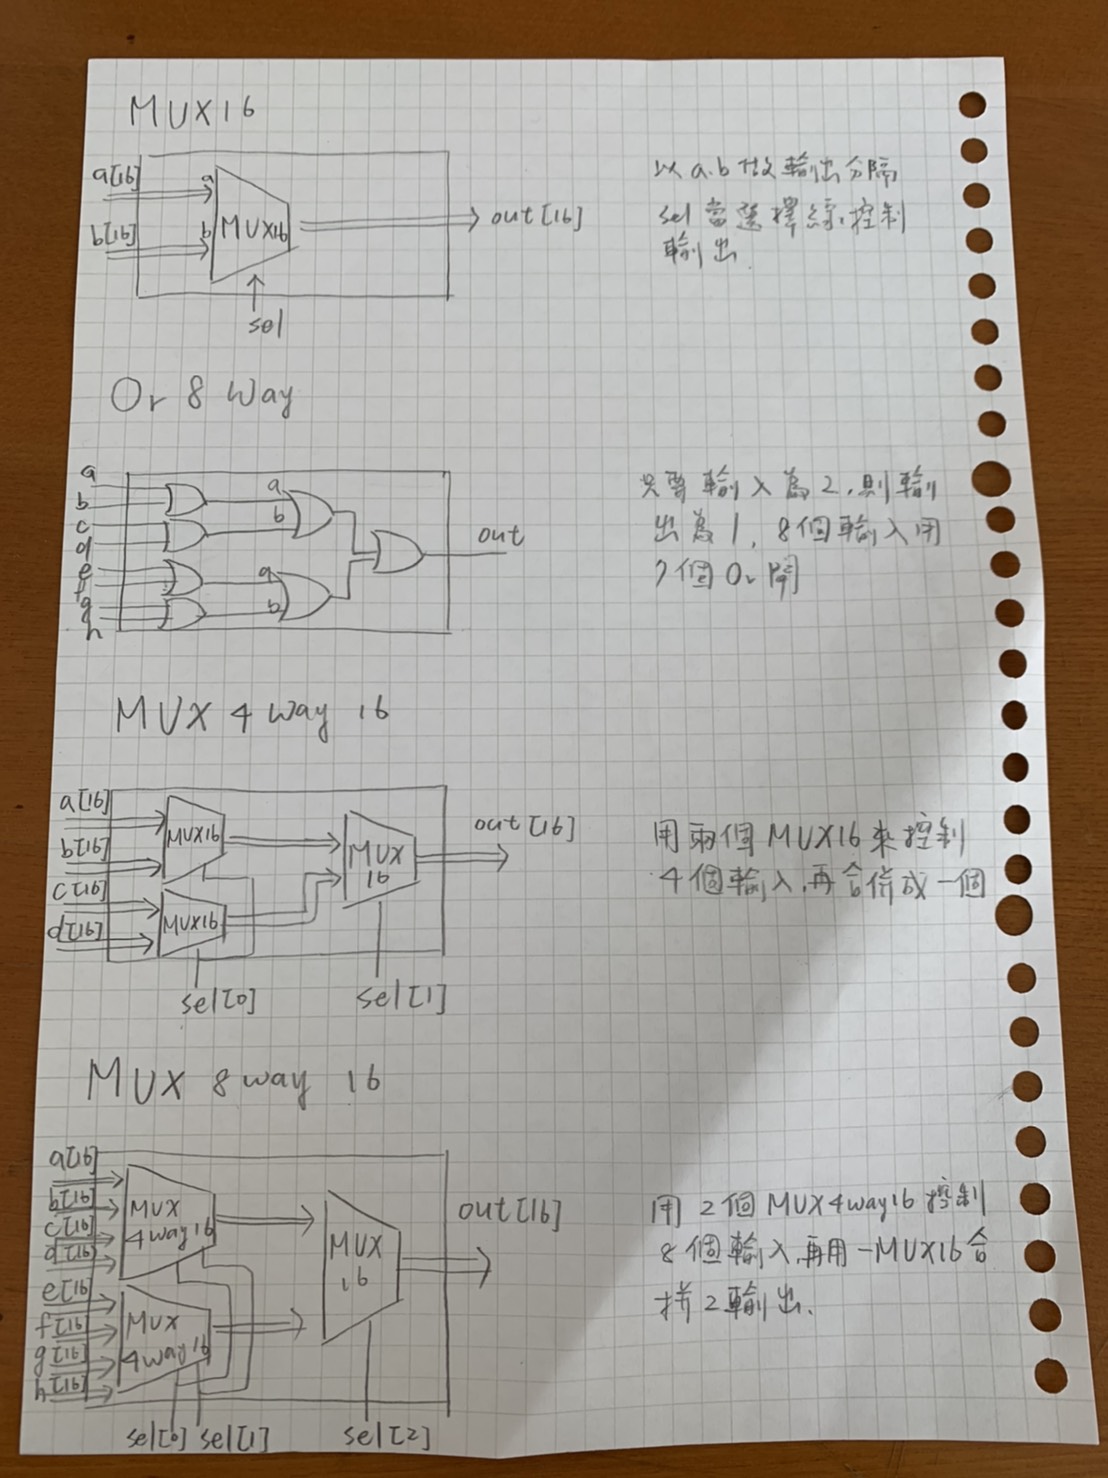 MUX16
a[16]
b[16]
a
b
MUX16
out[16]
sel
以a.b做輸出分隔
sel當選擇線.控制
輸出
Or 8 Way
a
b
c
d
e
f
g
h
a
b
a
b
out
只要輸入為2.則輸
出為1, 8個輸入用
7個Or閘
MUX 4 way 16
a[16]
b[16]
c[16]
d[16]
MUX16
MUX16
MUX
16
out[16]
sel[0]
sel[1]
用兩個MUX16來控制
4個輸入.再合併成一個
MUX 8 way 16
a[16]
b[16]
c[16]
d[16]
e[16]
f[16]
g[16]
h[16]
MUX
4way16
MUX
4way16
MUX
16
out[16]
sel[0]
sel[1]
sel[2]
用2個MUX4way16控制
8個輸入.再用一MUX16合
拼2輸出.